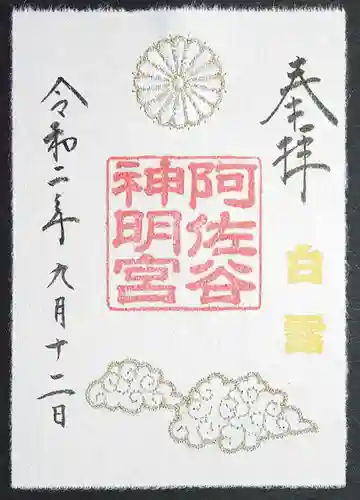 奉拝
白雲
阿佐谷
神明宮
令和二年九月十二日